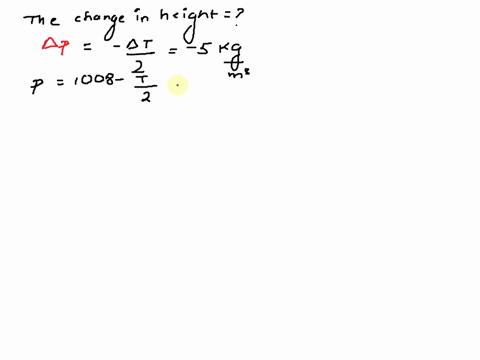 The change in height = ?
Δp = - ΔT/2 = -5 kg/m³
p = 1008 - T/2